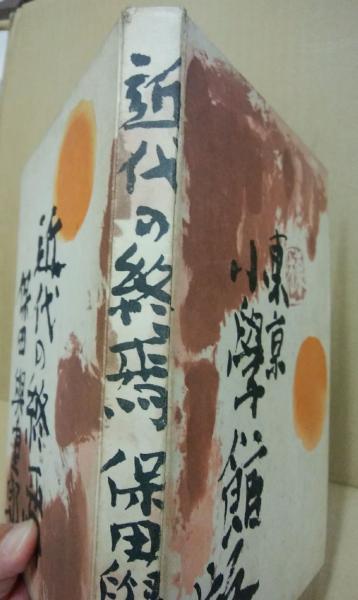 近代の終焉 保田與
東京
小學館版
近代の終焉
保田與重郎